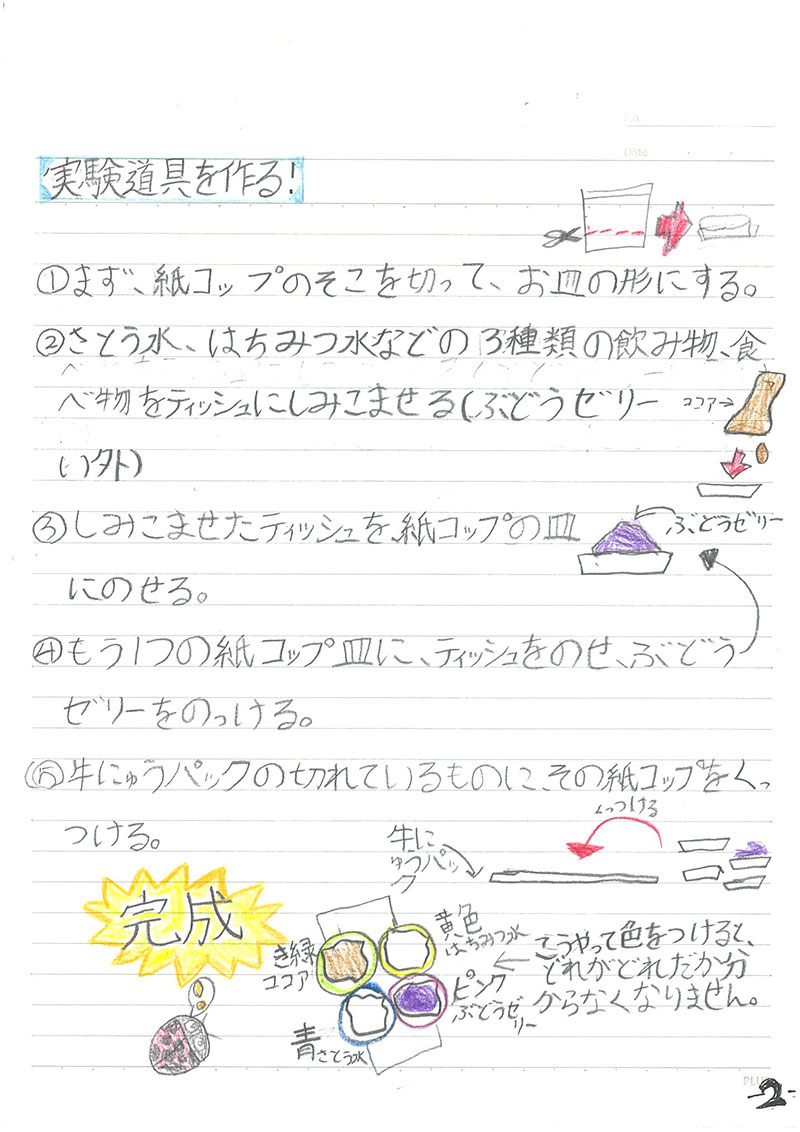 No.
Date
実験道具を作る!
①まず、紙コップのそこを切って、お皿の形にする。
②さとう水、はちみつ水などの3種類の飲み物、食
べ物をティッシュにしみこませる(ぶどうゼリー
い外)
ココア→
③しみこませたティッシュを、紙コップの皿
にのせる。
ぶどうゼリー
④もう1つの紙コップ皿に、ティッシュをのせ、ぶどう
ゼリーをのっける。
⑤牛にゅうパックの切れているものに、その紙コップをくっ
つける。
くっつける
牛に
ゅうパッ
ク
完成
き緑
ココア
黄色
はちみつ水
ピンク
ぶどうゼ
リー
青さとう水
こうやって色をつけると、
どれがどれだか分
からなくなりません。
PLUS
-2-